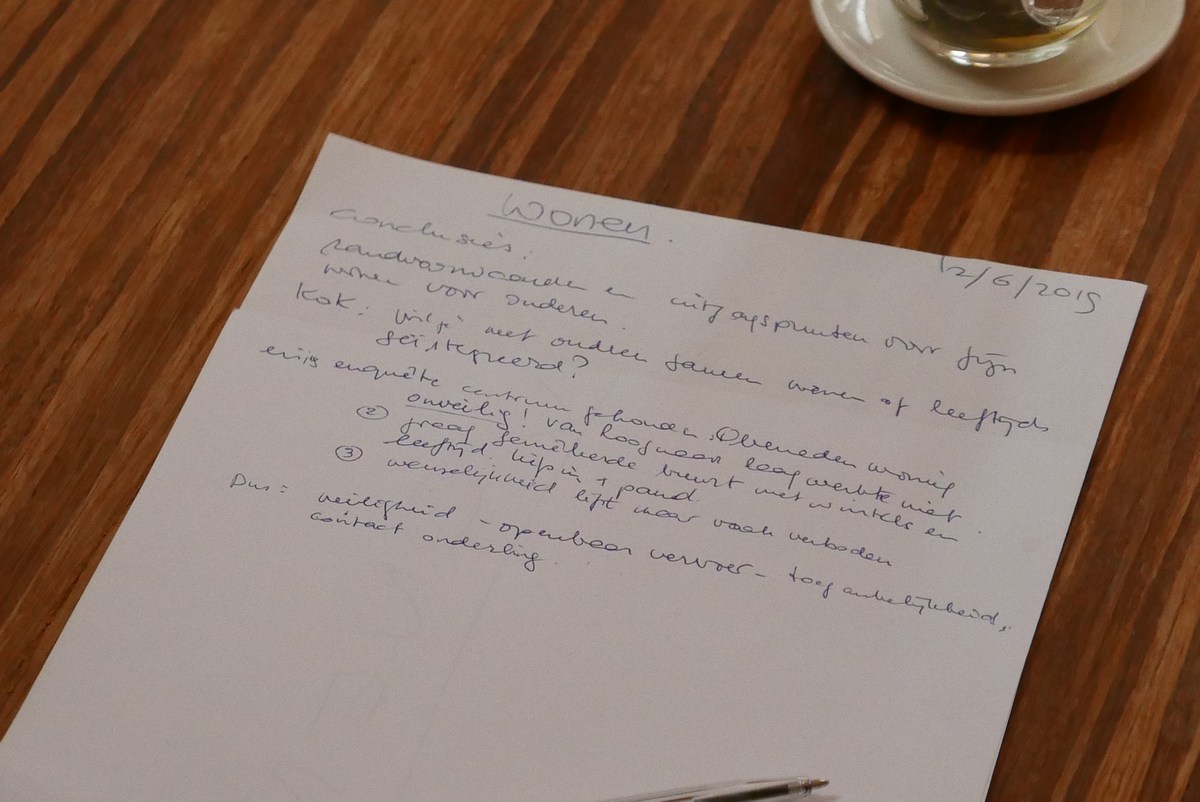 Wonen.
12/6/2019
Conclusies:
randvoorwaarden en uitgangspunten voor fijn
wonen voor ouderen.
Kok: wil je met ouderen samen wonen of leeftijds
geïntegreerd?
enquête centrum gehouden. Obeneden woning
onveilig! van hoog naar laag werkte niet.
② graag gemêleerde buurt met winkels en
leeftijd + pand
③ wenselijkheid lift maar vaak verboden
Dus: veiligheid - openbaar vervoer - toegankelijkheid,
contact onderling.